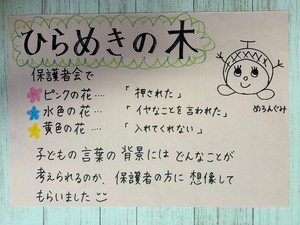 ひらめきの木
保護者会で
ピンクの花‥‥「押された」
水色の花‥‥「イヤなことを言われた」
黄色の花‥‥「入れてくれない」
めろんぐみ
子どもの言葉の背景にはどんなことが
考えられるのか、保護者の方に想像して
もらいました